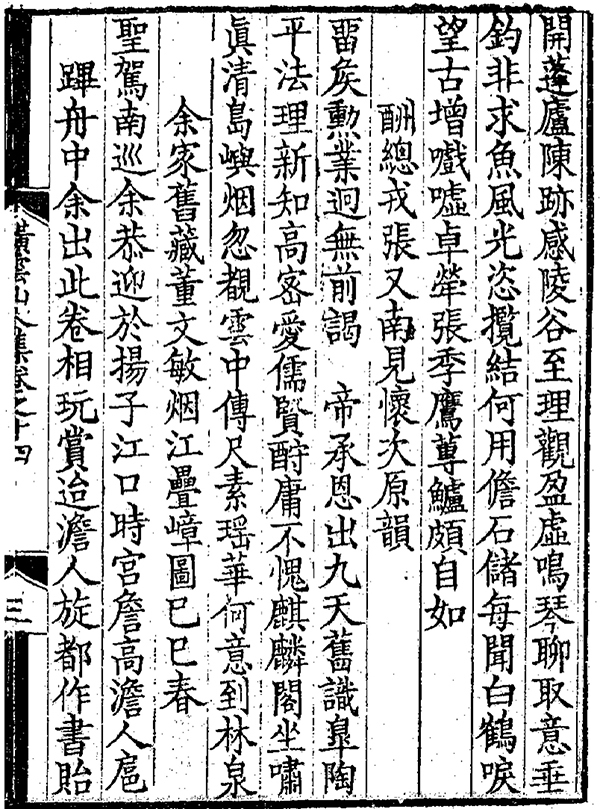 開蓬廬陳跡感陵谷至理觀盈虛鳴琴聊取意垂
釣非求魚風光恣攬結何用儋石儲每聞白鶴唳
望古增嚱噓卓犖張季鷹蓴鱸頗自如
酬總戎張又南見懷次原韻
畱矦勲業迥無前謁　帝承恩出九天舊識臯陶
平法理新知高密愛儒賢酧庸不愧麒麟閣坐嘯
眞清島嶼烟忽覩雲中傳尺素瑶華何意到林泉
余家舊藏董文敏烟江疊嶂圖己巳春
聖駕南巡余恭迎於揚子江口時宮詹高澹人扈
蹕舟中余出此卷相玩賞迨澹人旋都作書貽
橫雲山人集卷之十四
三